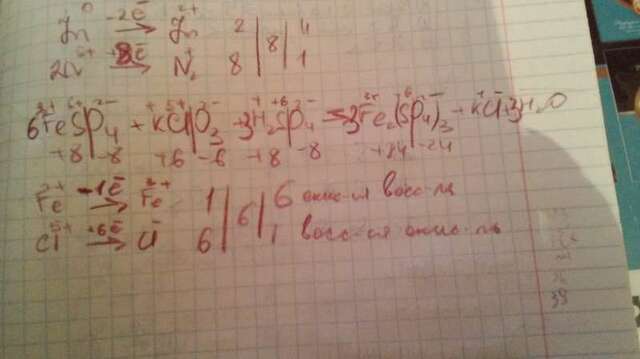 Zn⁰ -2ē → Zn²⁺ 2 | 8 | 4
2N⁵⁺ +8ē → N₂⁺ 8 | 1
6Fe²⁺S⁶⁺O₄²⁻ + K⁺Cl⁵⁺O₃²⁻ + 3H₂⁺S⁺⁶O₄²⁻ = 3Fe₂³⁺(S⁶⁺O₄²⁻)₃ + K⁺Cl⁻ + 3H₂O
+8 -8 +6 -6 +8 -8 +24 -24
Fe²⁺ -1ē → Fe³⁺ 1 | 6 | 6 окис-я восс-ль
Cl⁵⁺ +6ē → Cl⁻ 6 | 1 восс-ся окис-ль
39